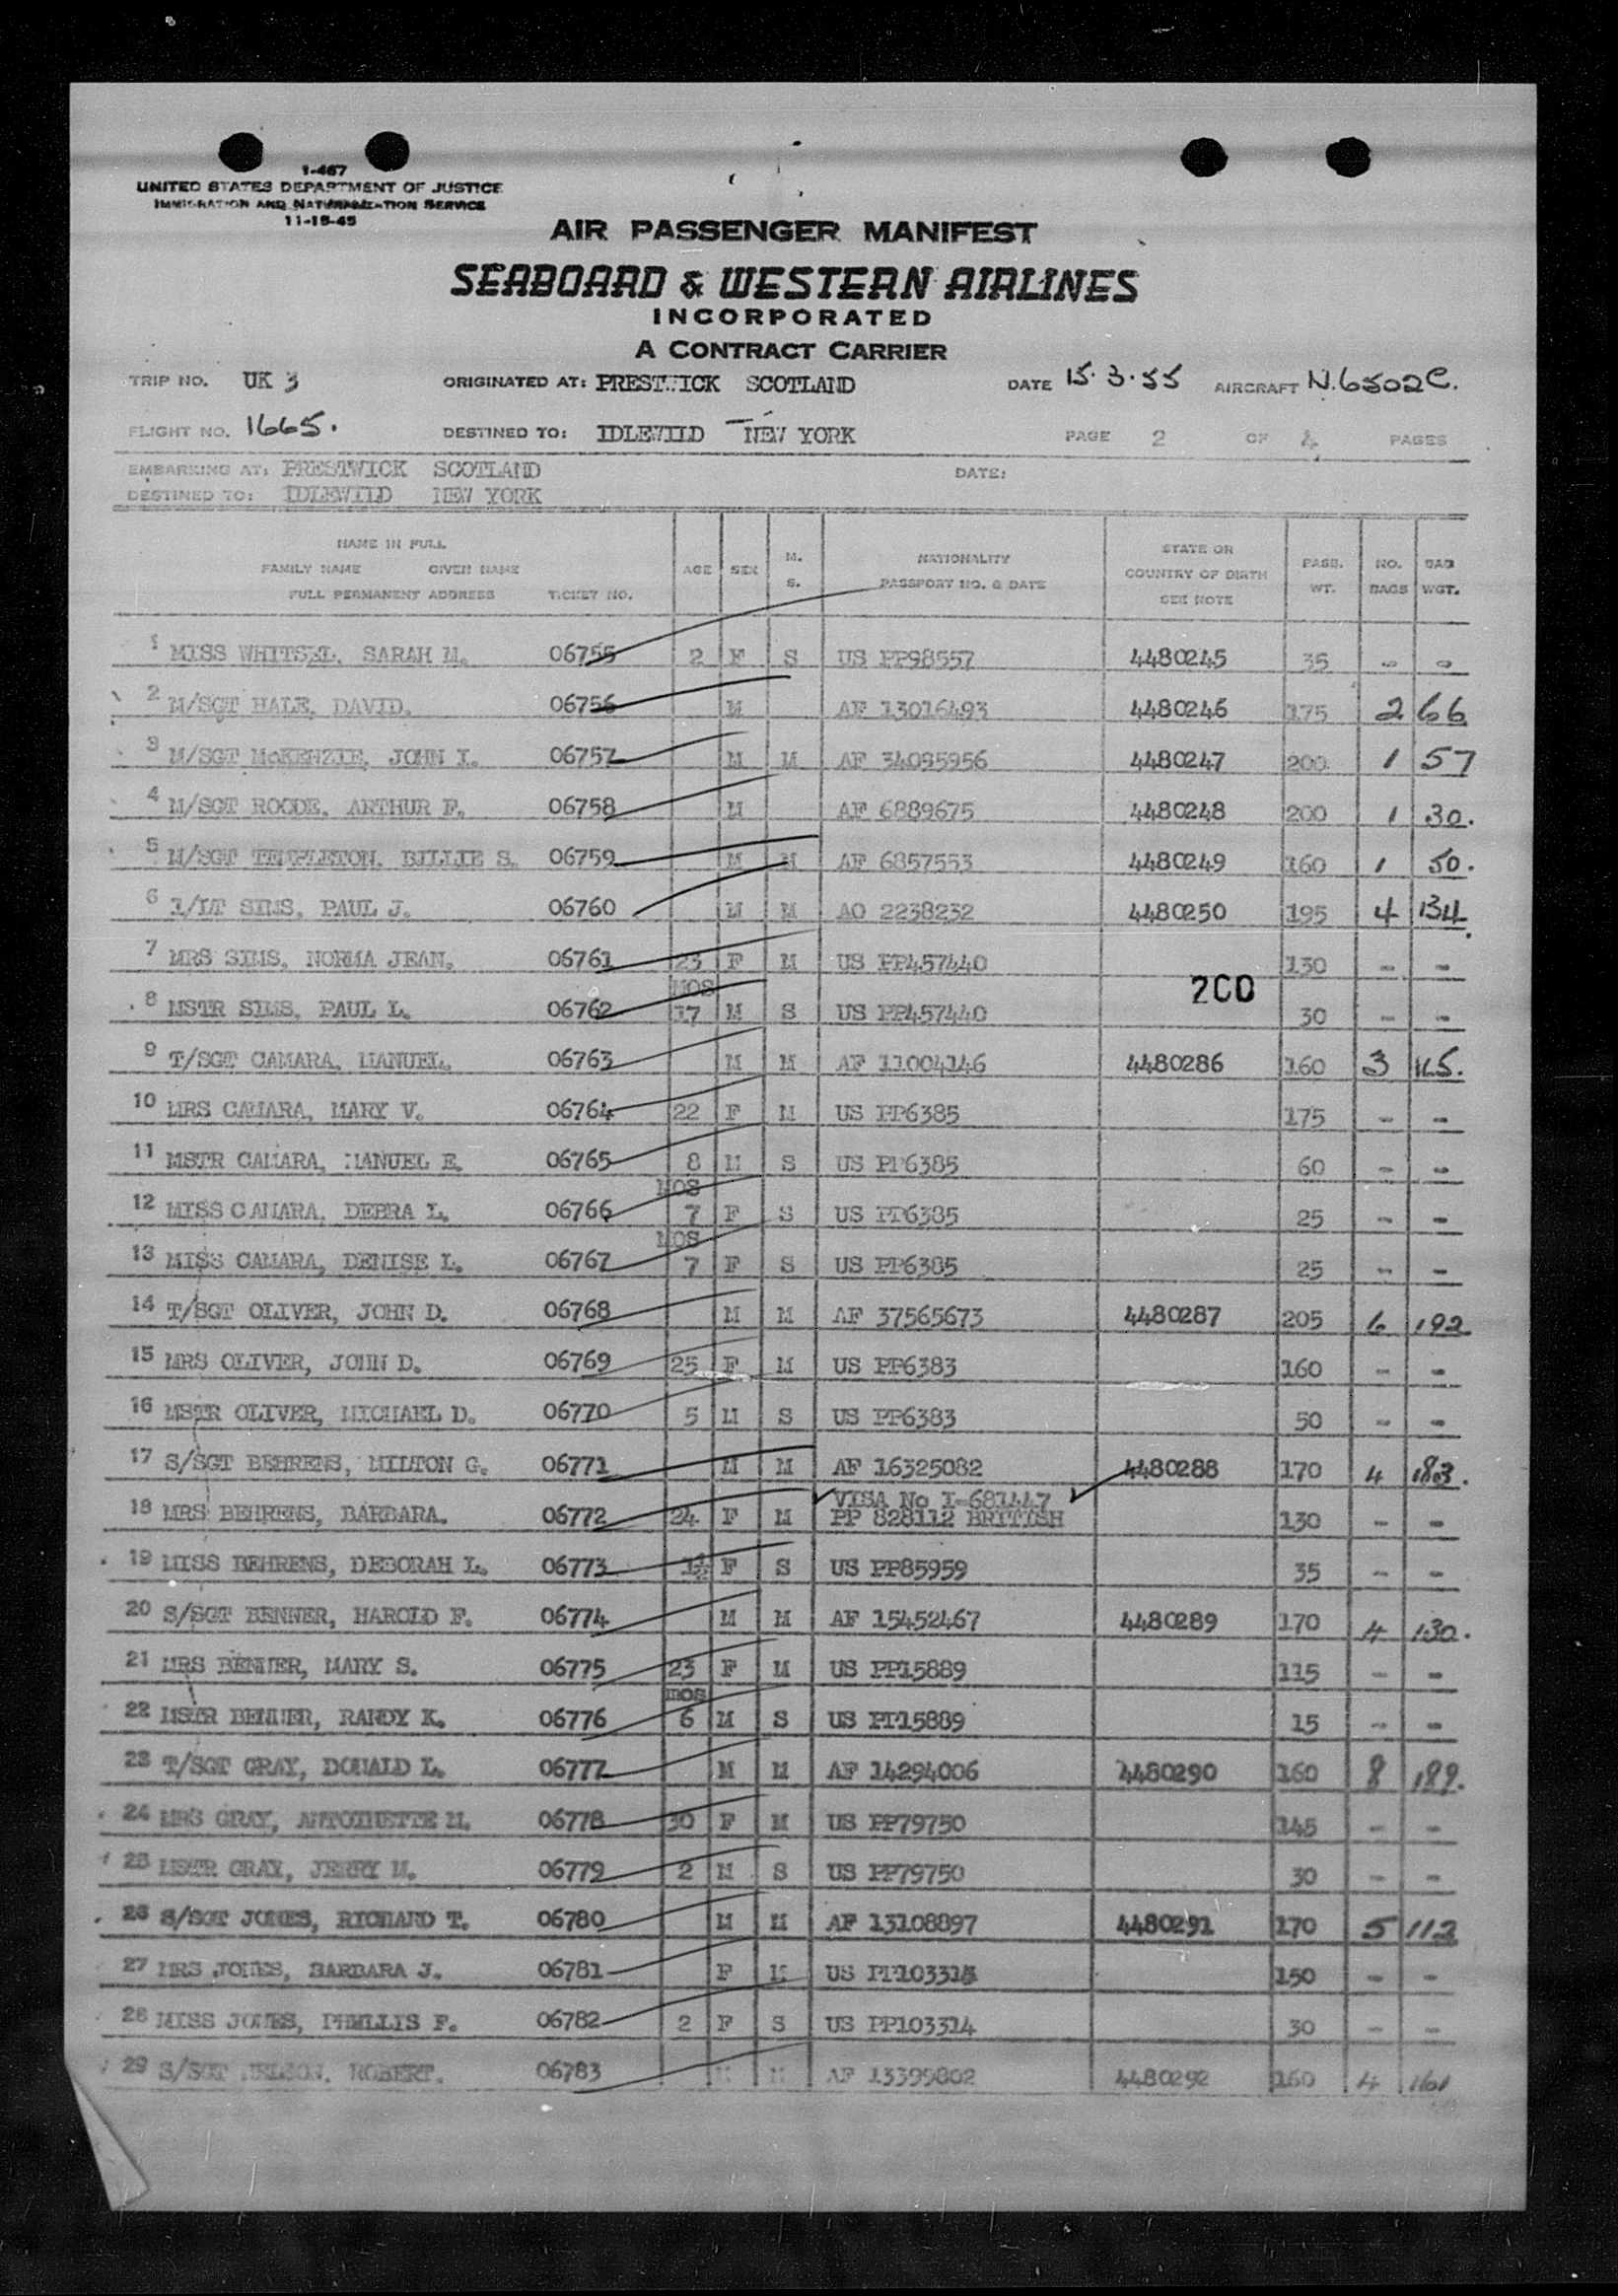 1-467
UNITED STATES DEPARTMENT OF JUSTICE
IMMIGRATION AND NATURALIZATION SERVICE
11-15-45
AIR PASSENGER MANIFEST
SEABOARD & WESTERN AIRLINES
INCORPORATED
A CONTRACT CARRIER
TRIP NO. UK 3 ORIGINATED AT: PRESTWICK SCOTLAND DATE 15.3.55 AIRCRAFT N.6502C.
FLIGHT NO. 1665. DESTINED TO: IDLEWILD NEW YORK PAGE 2 OF 4 PAGES
EMBARKING AT: PRESTWICK SCOTLAND DATE:
DESTINED TO: IDLEWILD NEW YORK
NAME IN FULL
FAMILY NAME GIVEN NAME
FULL PERMANENT ADDRESS TICKET NO. AGE SEX M. S. NATIONALITY PASSPORT NO. & DATE STATE OR COUNTRY OF BIRTH SEE NOTE PASS. WT. NO. BAGS BAG WGT.
1 MISS WHITSEL, SARAH M. 06755 2 F S US PP98557 4480245 35 - -
2 M/SGT HALE, DAVID. 06756 M AF 13016493 4480246 175 2 66
3 M/SGT McKENZIE, JOHN I. 06757 M M AF 34095956 4480247 200 1 57
4 M/SGT ROODE, ARTHUR F. 06758 M AF 6889675 4480248 200 1 30.
5 M/SGT TEMPLETON, BILLIE S. 06759 M M AF 6857553 4480249 160 1 50.
6 1/LT SIMS, PAUL J. 06760 M M AO 2238232 4480250 195 4 134.
7 MRS SIMS, NORMA JEAN. 06761 23 F M US PP457440 130 - -
200
8 MSTR SIMS, PAUL L. 06762 MOS 17 M S US PP457440 30 - -
9 T/SGT CAMARA, MANUEL. 06763 M M AF 11004146 4480286 160 3
10 MRS CAMARA, MARY V. 06764 22 F M US PP6385 175 - -
11 MSTR CAMARA, MANUEL E. 06765 8 M S US PP6385 60 - -
12 MISS CAMARA, DEBRA L. 06766 MOS 7 F S US PP6385 25 - -
13 MISS CAMARA, DENISE L. 06767 MOS 7 F S US PP6385 25 - -
14 T/SGT OLIVER, JOHN D. 06768 M M AF 37565673 4480287 205 6 192
15 MRS OLIVER, JOHN D. 06769 25 F M US PP6383 160 - -
16 MSTR OLIVER, MICHAEL D. 06770 5 M S US PP6383 50 - -
17 S/SGT BEHRENS, MILTON G. 06771 M M AF 16325082 4480288 170 4 183.
18 MRS BEHRENS, BARBARA. 06772 24 F M VISA No I-681447 PP 828112 BRITISH 130 - -
19 MISS BEHRENS, DEBORAH L. 06773 1½ F S US PP85959 35 - -
20 S/SGT BENNER, HAROLD F. 06774 M M AF 15452467 4480289 170 4 130.
21 MRS BENNER, MARY S. 06775 23 F M US PP15889 115 - -
22 MSTR BENNER, RANDY K. 06776 MOS 6 M S US PP15889 15 - -
23 T/SGT GRAY, DONALD L. 06777 M M AF 14294006 4480290 160 8 189.
24 MRS GRAY, ANTOINETTE M. 06778 30 F M US PP79750 145 - -
25 MSTR GRAY, JERRY M. 06779 2 M S US PP79750 30 - -
26 S/SGT JONES, RICHARD T. 06780 M M AF 13108897 4480291 170 5 112
27 MRS JONES, BARBARA J. 06781 F M US 150 - -
28 MISS JONES, PHYLLIS F. 06782 2 F S US PP103314 30 - -
29 S/SGT NELSON, ROBERT. 06783 M M AF 13395802 4480292 160 4 161